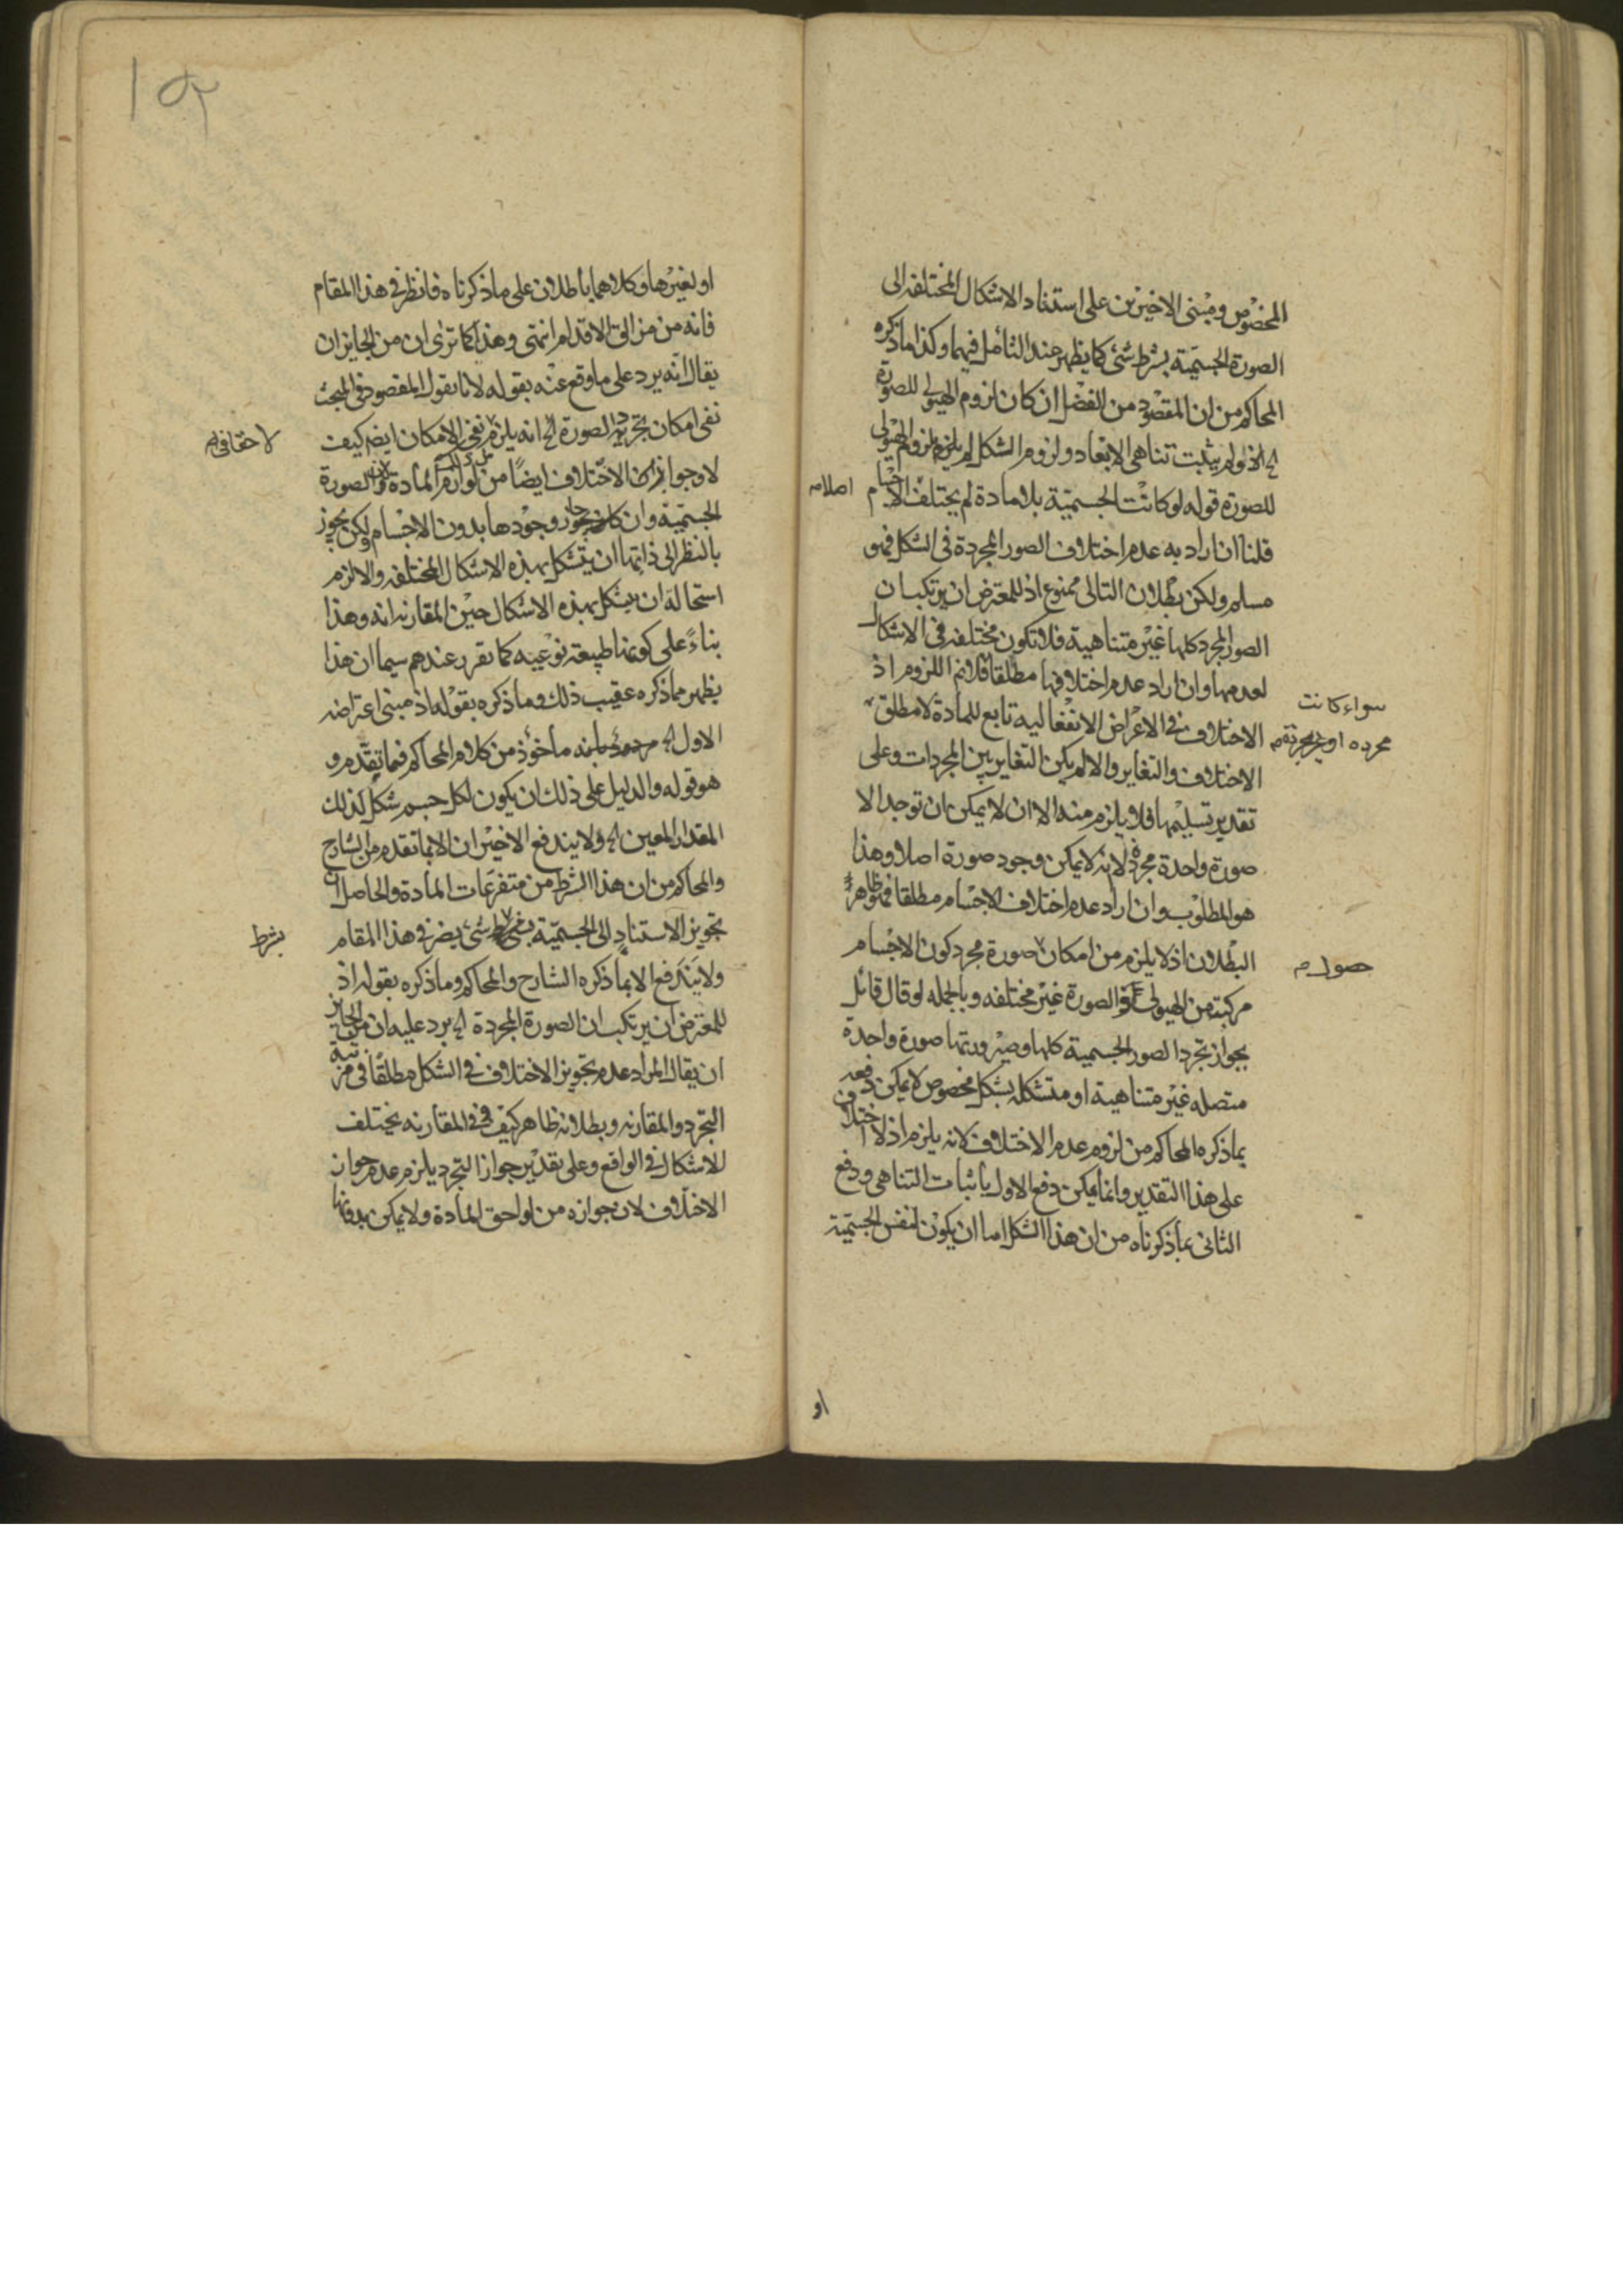 المخصوص ومبنى الاخيرين على استناد الاشكال المختلفه الى
الصورة الجسمية بشرط شئ كما يظهر عند التأمل فيهما وكذا ما ذكره
المحاكم من ان المقصود من الفصل ان كان لزوم الهيولى للصورة
الخ اذ لو لم يثبت تناهى الابعاد ولزوم الشكل لم يلزم لزوم الهيولى
للصورة قوله لو كانت الجسمية بلا مادة لم يختلف الاجسام
اصلا م
قلنا ان اراد به عدم اختلاف الصور المجردة فى الشكل فهو
مسلم ولكن بطلان التالى ممنوع اذ للمعترض ان يرتكب ان
الصور المجرد كلها غير متناهية فلا تكون مختلفه فى الاشكال
لعدمها وان اراد عدم اختلافها مطلقا فلا نم اللزوم اذ
سواء كانت
مجرده او غير مجردة م
الاختلاف فى الاعراض الانفعاليه تابع للمادة لا مطلق
الاختلاف والتغاير والا لم يكن التغاير بين المجردات وعلى
تقدير تسليمها فلا يلزم منه الا ان لا يمكن ان توجد الا
صورة واحدة مجردة لا انه لا يمكن وجود صورة اصلا وهذا
هو المطلوب وان اراد عدم اختلاف الاجسام مطلقا فهو ظاهر
البطلان اذ لا يلزم من امكان صورة مجرد كون الاجسام
حصول م
مركبة من الهيولى والصورة غير مختلفه وبالجمله لو قال قائل
بجواز تجرد الصور الجسمية كلها وصيرورتها صورة واحدة
متصله غير متناهية او متشكله بشكل مخصوص لا يمكن دفعه
بما ذكره المحاكم من لزوم عدم الاختلاف لانه يلزم اذ لا اختلاف
على هذا التقدير وانما يمكن دفع الاول باثبات التناهى ودفع
الثانى بما ذكرناه من ان هذا الشكل اما ان يكون لنفس الجسمية
او
١٥٢
او لغيرها وكلاهما باطلان على ما ذكرناه فانظر فى هذا المقام
فانه من مزالق الاقدام انتهى وهذا كما ترى ان من الجايز ان
يقال انه يرد على ما وقع عنه بقوله لانا نقول المقصود فى المبحث
نفى امكان تجريد الصورة الخ انه يلزم نفى الامكان ايضا كيف
لا وجواز الاختلاف ايضا من لوازم المادة الصورة
الجسمية وان جاز وجودها بدون الاجسام ولكن يجوز
بالنظر الى ذاتها ان يتشكل بهذه الاشكال المختلفه والا لزم
استحالة ان يتشكل بهذه الاشكال حين المقارنه وهذا
بناءً على كونها طبيعة نوعيه كما تقرر عندهم سيما ان هذا
يظهر مما ذكره عقيب ذلك وما ذكره بقوله اذ مبنى اعتراضه
الاول الخ مأخوذ من كلام المحاكم فيما تقدم و
هو قوله والدليل على ذلك ان يكون لكل جسم شكل لذلك
المقدار المعين الخ ولا يندفع الاخيران الا بما تقدم من الشارح
والمحاكم من ان هذا الشرط من متفرعات المادة والحاصل ان
تجويز الاستناد الى الجسمية شئ يضر فى هذا المقام
بشرط
ولا يندفع الا بما ذكره الشارح والمحاكم وما ذكره بقوله اذ
للمعترض ان يرتكب ان الصورة المجردة الخ يرد عليه ان من الجايز
ان يقال المراد عدم تجويز الاختلاف فى الشكل مطلقا فى مرتبة
التجرد والمقارنه وبطلانه ظاهر كيف وفى المقارنه يختلف
الاشكال فى الواقع وعلى تقدير جواز التجرد يلزم عدم جواز
الاختلاف لان جوازه من لواحق المادة ولا يمكن بدونها